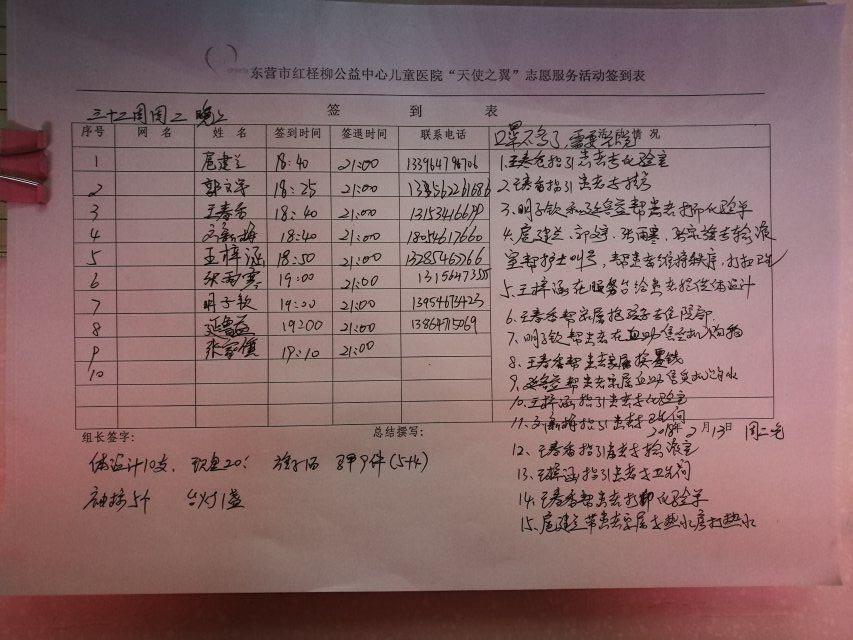 东营市红柽柳公益中心儿童医院“天使之翼”志愿服务活动签到表
三十二周周二 晚上
签 到 表
序号 网 名 姓 名 签到时间 签退时间 联系电话 情 况
口罩不多了,需要
1 扈建兰 18:40 21:00 133964796706
2 郭文宇 18:25 21:00
3 王春香 18:40 21:00
4 18:40 21:00 18054617660
5 王梓涵 18:50 21:00 13285465766
6 张雨寒 19:00 21:00
7 明子钦 19:00 21:00 13954673423
8 19:00 21:00 13864715069
9 张家慎 19:10 21:00
10
1.王春香指引患者去化验室
2.王春香指引患者去
3.明子钦和 帮患者打印化验单
4.扈建兰、郭文宇、张雨寒、 去输液
室帮护士叫号,帮患者维持秩序,打扫卫生
5.王梓涵在服务台给患者提供体温计
6.王春香帮家属抱孩子去住院部
7.明子钦帮患者在自助售货机购物
8.王春香帮患者家属换零钱
9. 帮患者家属自助售货机购水
10.王梓涵指引患者去化验室
11. 指引患者去卫生间
12.王春香指引患者去输液室
13.王梓涵指引患者去卫生间
14.王春香帮患者打印化验单
15.扈建兰带患者家属去热水房打热水
组长签字: 总结撰写:
2018年2月13日 周二晚
体温计10支、 马甲9件(5+4)
袖标5个 台灯1盏